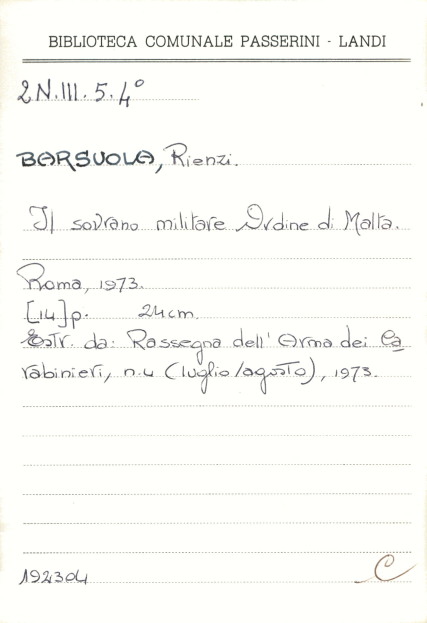 BIBLIOTECA COMUNALE PASSERINI - LANDI
2N.III.5.4°
BARSUOLA, Rienzi.
Il sovrano militare Ordine di Malta.
Roma, 1973.
[14]p. 24cm.
Estr. da: Rassegna dell'Arma dei Ca
rabinieri, n.4 (luglio/agosto), 1973.
192304 C